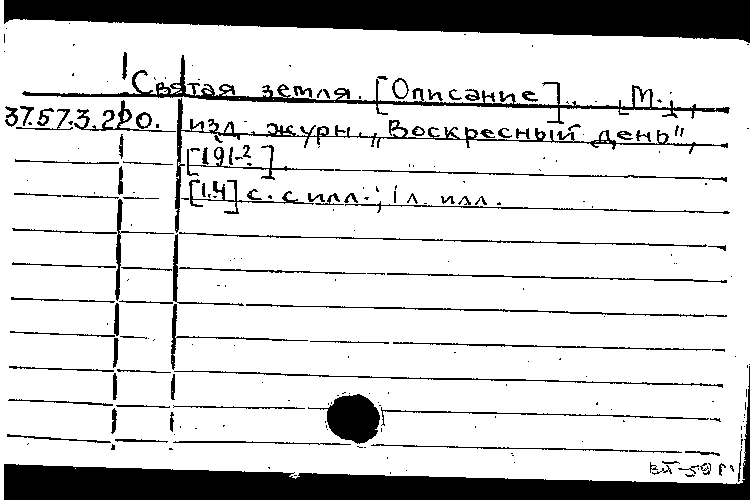 Святая земля. [Описание]. М.,
37.57.3.220. изд. журн. „Воскресный день",
[191-?].
[14] с. с илл.; 1 л. илл.